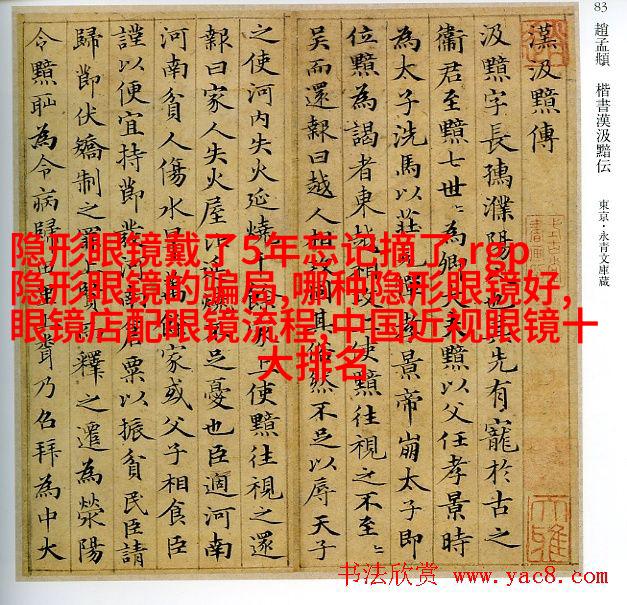 隐形眼镜戴了5年忘记摘了,rgp
隐形眼镜的骗局,哪种隐形眼镜好,
眼镜店配眼镜流程,中国近视眼镜十
大排名
83
趙孟頫 楷書漢汲黯伝 東京・永青文庫蔵
漢汲黯傳
汲黯字長孺濮陽人也其先有寵於古之
衛君至黯七世〻為卿大夫黯以父任孝景時
為太子洗馬以莊見憚孝景帝崩太子即
位黯為謁者東越相攻上使黯往視之不至〻
吳而還報曰越人相攻固其俗然不足以辱天子
之使河内失火延燒千餘家上使黯往視之還
報曰家人失火屋比延燒不足憂也臣適河南
河南貧人傷水旱萬餘家或父子相食臣
謹以便宜持節發河南倉粟以振貧民臣請
歸節伏矯制之罪上賢而釋之遷為滎陽
令黯恥為令病歸田里上乃召拜為中大
书法欣赏 www.yac8.com